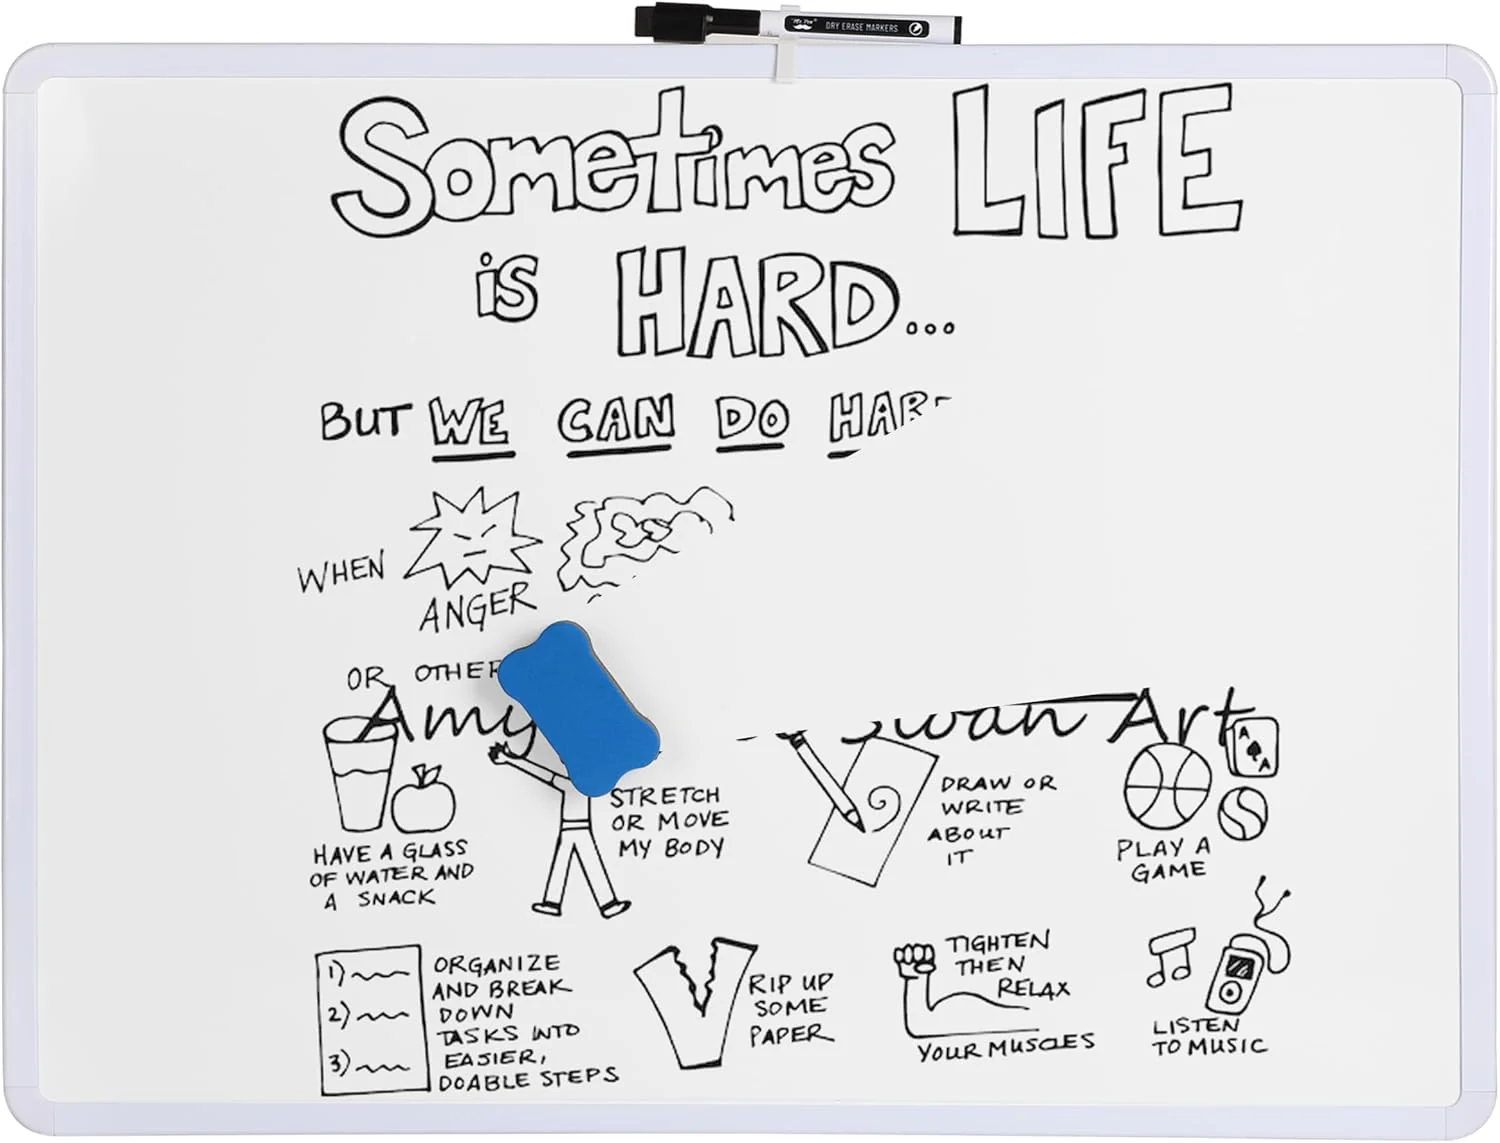 DRY ERASE MARKERS
Sometimes LIFE
is HARD...
BUT WE CAN DO HAR
WHEN
ANGER
OR OTHER
Amy Swan Art
A
A
HAVE A GLASS
OF WATER AND
A SNACK
STRETCH
OR MOVE
MY BODY
DRAW OR
WRITE
ABOUT
IT
PLAY A
GAME
1)
2)
3)
ORGANIZE
AND BREAK
DOWN
TASKS INTO
EASIER,
DOABLE STEPS
RIP UP
SOME
PAPER
TIGHTEN
THEN
RELAX
YOUR MUSCLES
LISTEN
TO MUSIC